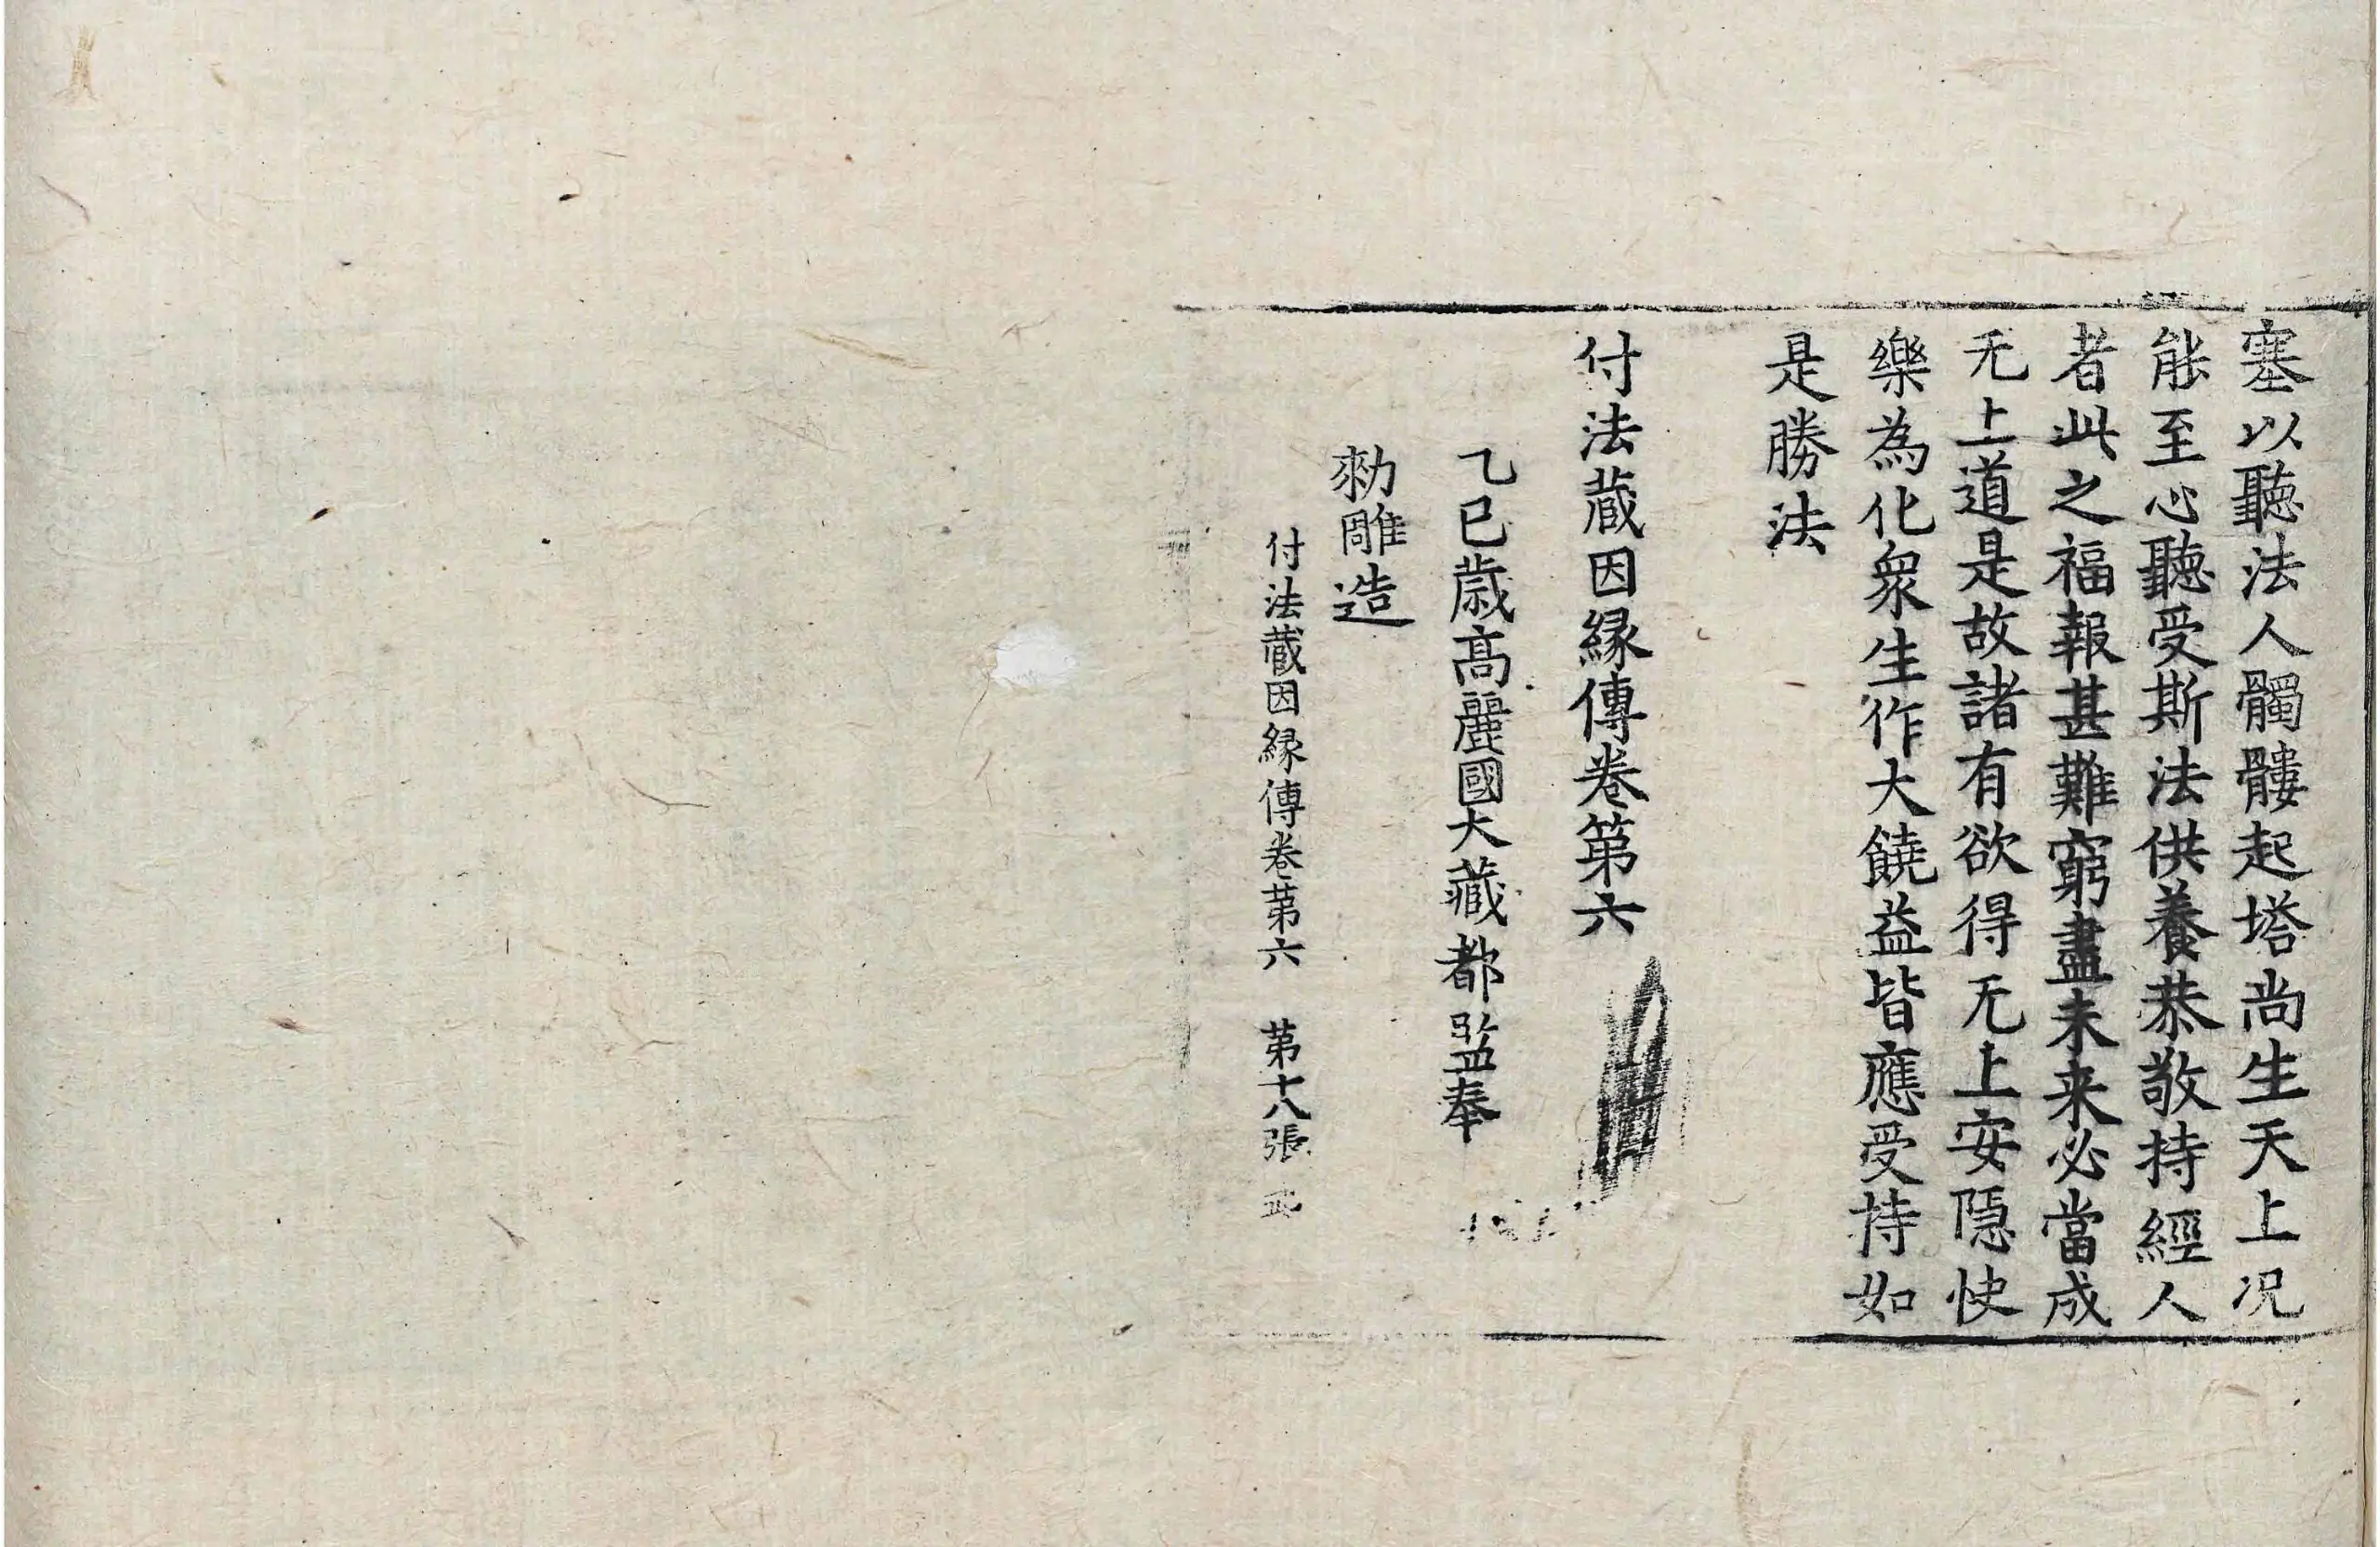 塞以聽法人髑髏起塔尚生天上况
能至心聽受斯法供養恭敬持經人
者此之福報甚難窮盡未来必當成
无上道是故諸有欲得无上安隠快
樂為化衆生作大饒益皆應受持如
是勝法
付法蔵因縁傳卷第六
乙巳歳髙麗國大藏都監奉
勑雕造
付法蔵因縁傳卷苐六 苐十八張